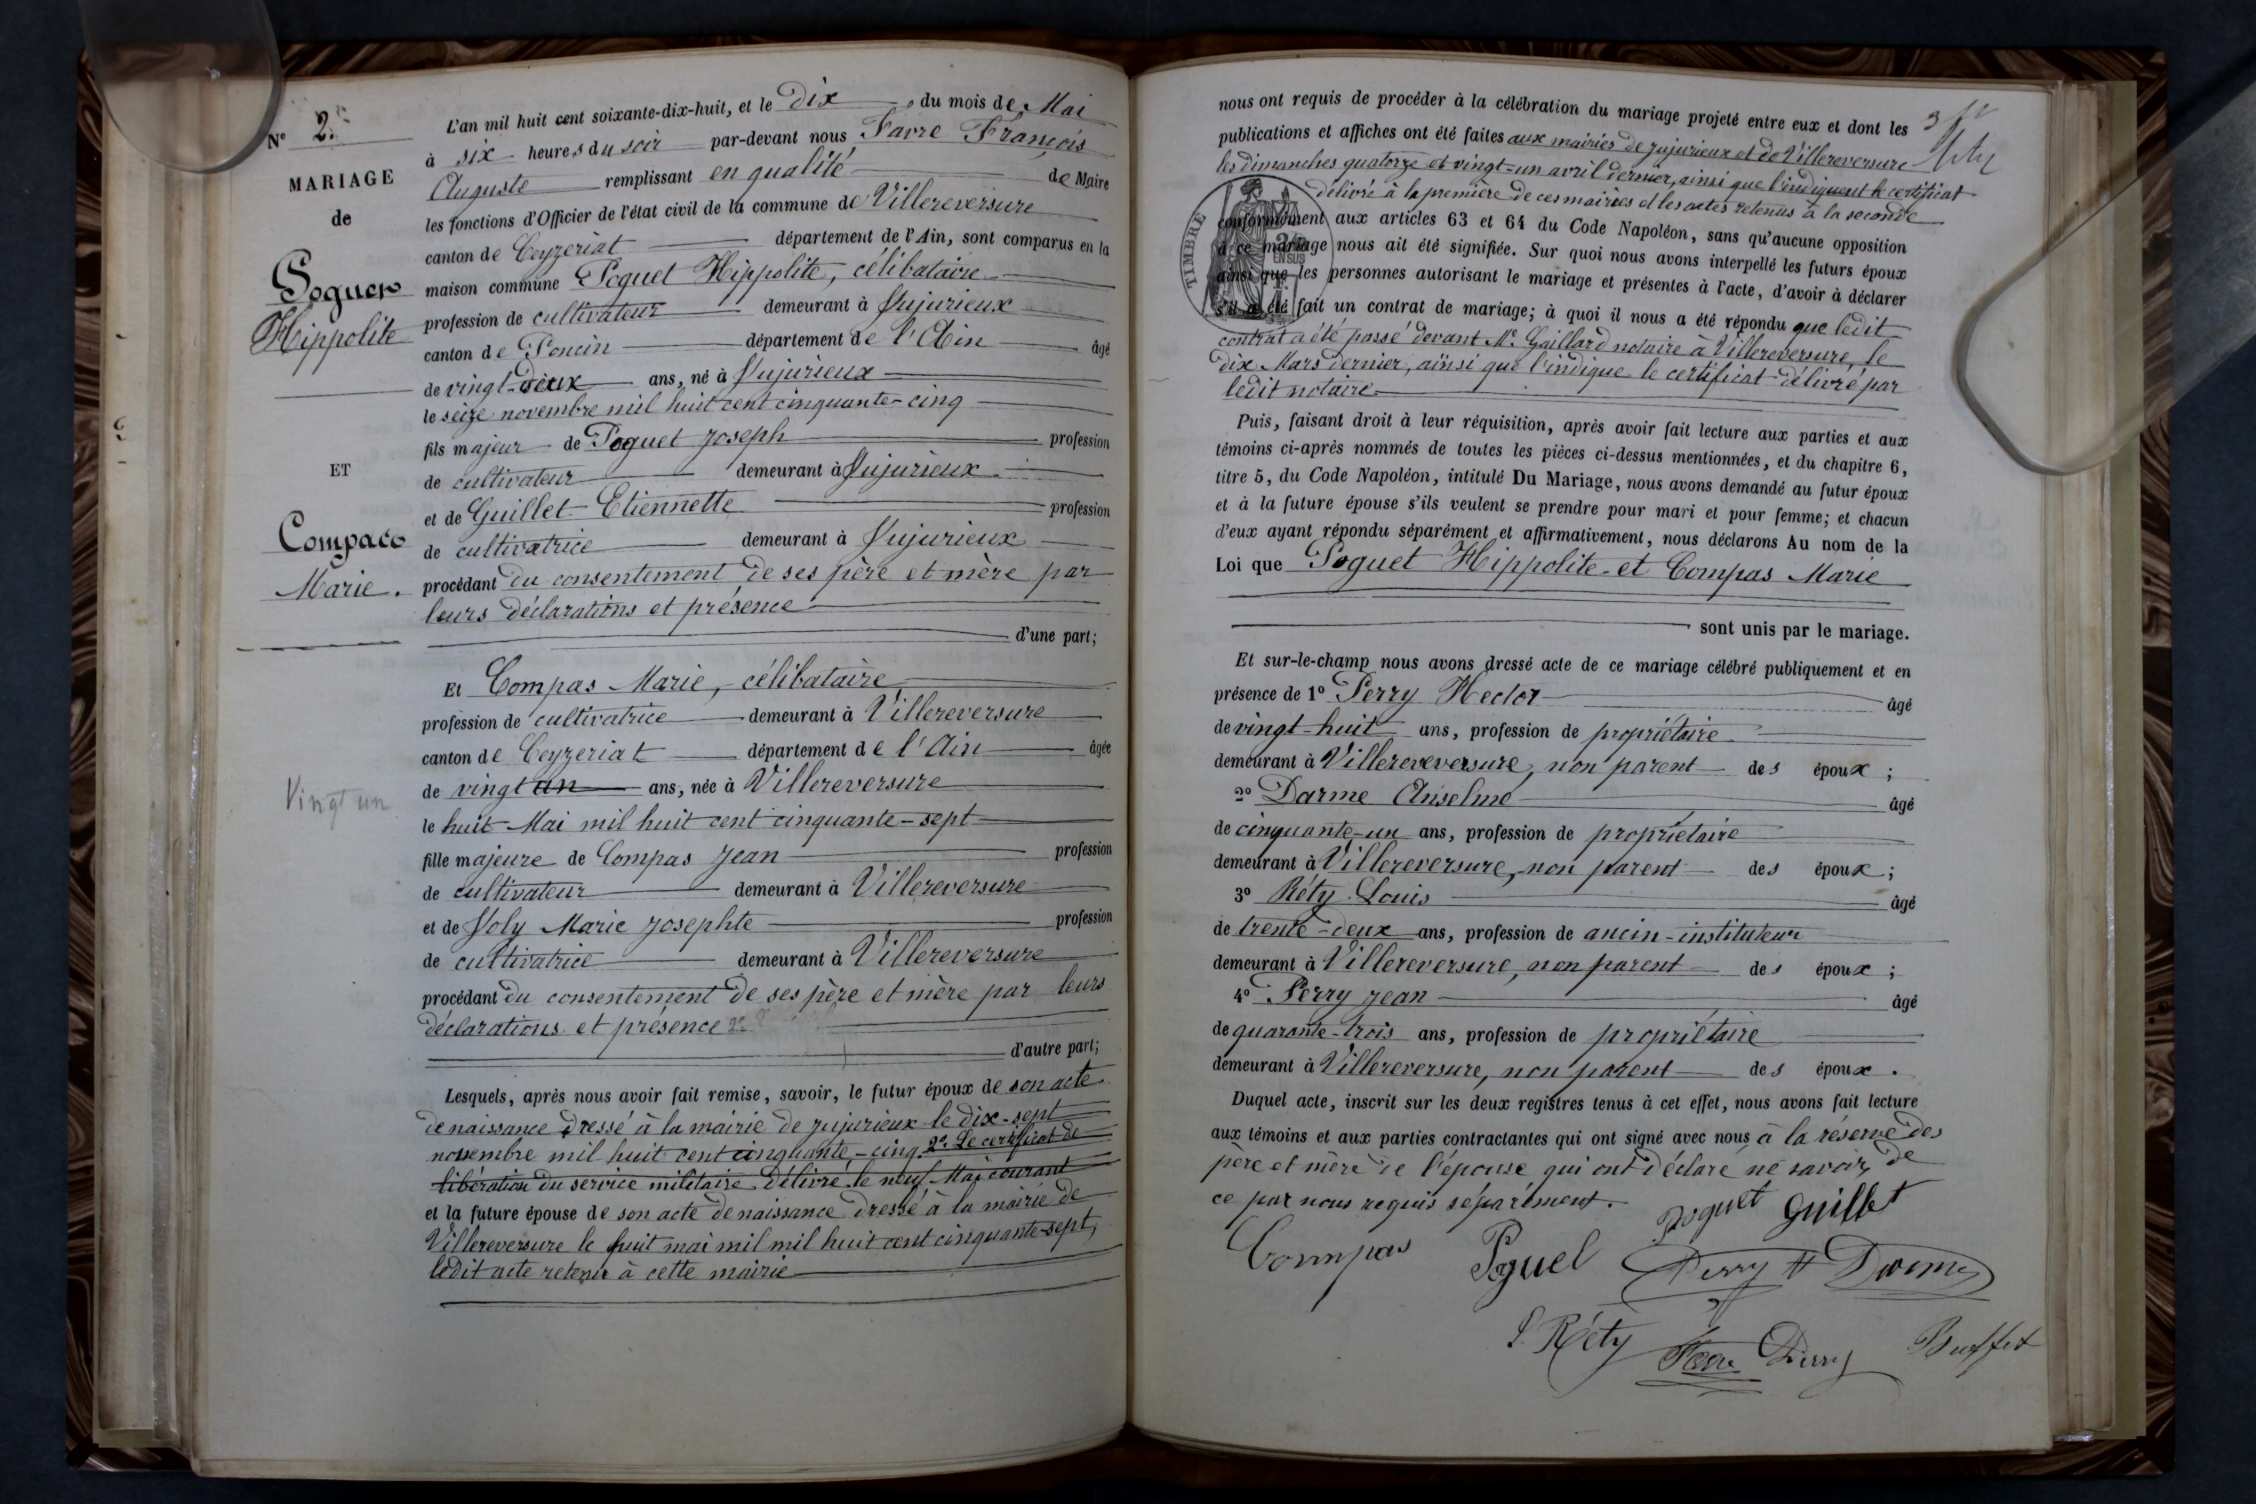 N° 2.
MARIAGE
de
Poguet
Hippolite
ET
Compas
Marie.
Vingt un
L'an mil huit cent soixante-dix-huit, et le Dix du mois de Mai
à six heures du soir par-devant nous Favre François
Auguste remplissant en qualité de Maire
les fonctions d'Officier de l'état civil de la commune de Villereversure
canton de Ceyzeriat département de l'Ain, sont comparus en la
maison commune Poguet Hippolite, célibataire
profession de cultivateur demeurant à Jujurieux
canton de Poncin département de l'Ain âgé
de vingt-deux ans, né à Jujurieux
le seize novembre mil huit cent cinquante-cinq
fils majeur de Poguet Joseph profession
de cultivateur demeurant à Jujurieux
et de Guillet Etiennette profession
de cultivatrice demeurant à Jujurieux
procédant du consentement de ses père et mère par
leurs déclarations et présence
d'une part;
Et Compas Marie, célibataire
profession de cultivatrice demeurant à Villereversure
canton de Ceyzeriat département de l'Ain âgée
de vingt un ans, née à Villereversure
le huit Mai mil huit cent cinquante-sept
fille majeure de Compas Jean profession
de cultivateur demeurant à Villereversure
et de Joly Marie Josephte profession
de cultivatrice demeurant à Villereversure
procédant du consentement de ses père et mère par leurs
déclarations et présence
d'autre part;
Lesquels, après nous avoir fait remise, savoir, le futur époux de son acte
de naissance dressé à la mairie de Jujurieux le dix-sept
novembre mil huit cent cinquante-cinq 2° Le certificat de
libération du service militaire délivré le neuf Mai courant
et la future épouse de son acte de naissance dressé à la mairie de
Villereversure le huit mai mil mil huit cent cinquante-sept,
ledit acte retenu à cette mairie
nous ont requis de procéder à la célébration du mariage projeté entre eux et dont les
publications et affiches ont été faites aux mairies de Jujurieux et de Villereversure
les dimanches quatorze et vingt-un avril dernier, ainsi que l'indiquent le certificat
délivré à la première de ces mairies et les actes retenus à la seconde
TIMBRE
EN SUS
conformément aux articles 63 et 64 du Code Napoléon, sans qu'aucune opposition
à ce mariage nous ait été signifiée. Sur quoi nous avons interpellé les futurs époux
ainsi que les personnes autorisant le mariage et présentes à l'acte, d'avoir à déclarer
s'il a été fait un contrat de mariage; à quoi il nous a été répondu que ledit
contrat a été passé devant Me Gaillard notaire à Villereversure, le
dix Mars dernier, ainsi que l'indique le certificat délivré par
ledit notaire
Puis, faisant droit à leur réquisition, après avoir fait lecture aux parties et aux
témoins ci-après nommés de toutes les pièces ci-dessus mentionnées, et du chapitre 6,
titre 5, du Code Napoléon, intitulé Du Mariage, nous avons demandé au futur époux
et à la future épouse s'ils veulent se prendre pour mari et pour femme; et chacun
d'eux ayant répondu séparément et affirmativement, nous déclarons Au nom de la
Loi que Poguet Hippolite et Compas Marie
sont unis par le mariage.
Et sur-le-champ nous avons dressé acte de ce mariage célébré publiquement et en
présence de 1° Perry Hector âgé
de vingt-huit ans, profession de propriétaire
demeurant à Villereversure, non parent des époux;
2° Darme Anselme âgé
de cinquante-un ans, profession de propriétaire
demeurant à Villereversure, non parent des époux;
3° Réty Louis âgé
de trente-deux ans, profession de ancin-instituteur
demeurant à Villereversure, non parent des époux;
4° Perry Jean âgé
de quarante-trois ans, profession de propriétaire
demeurant à Villereversure, non parent des époux.
Duquel acte, inscrit sur les deux registres tenus à cet effet, nous avons fait lecture
aux témoins et aux parties contractantes qui ont signé avec nous à la réserve des
père et mère de l'épouse qui ont déclaré ne savoir, de
ce par nous requis séparément.
Poguet Guillet
Compas Poguet Perry H Darme
L. Réty Favre Perry Buffet